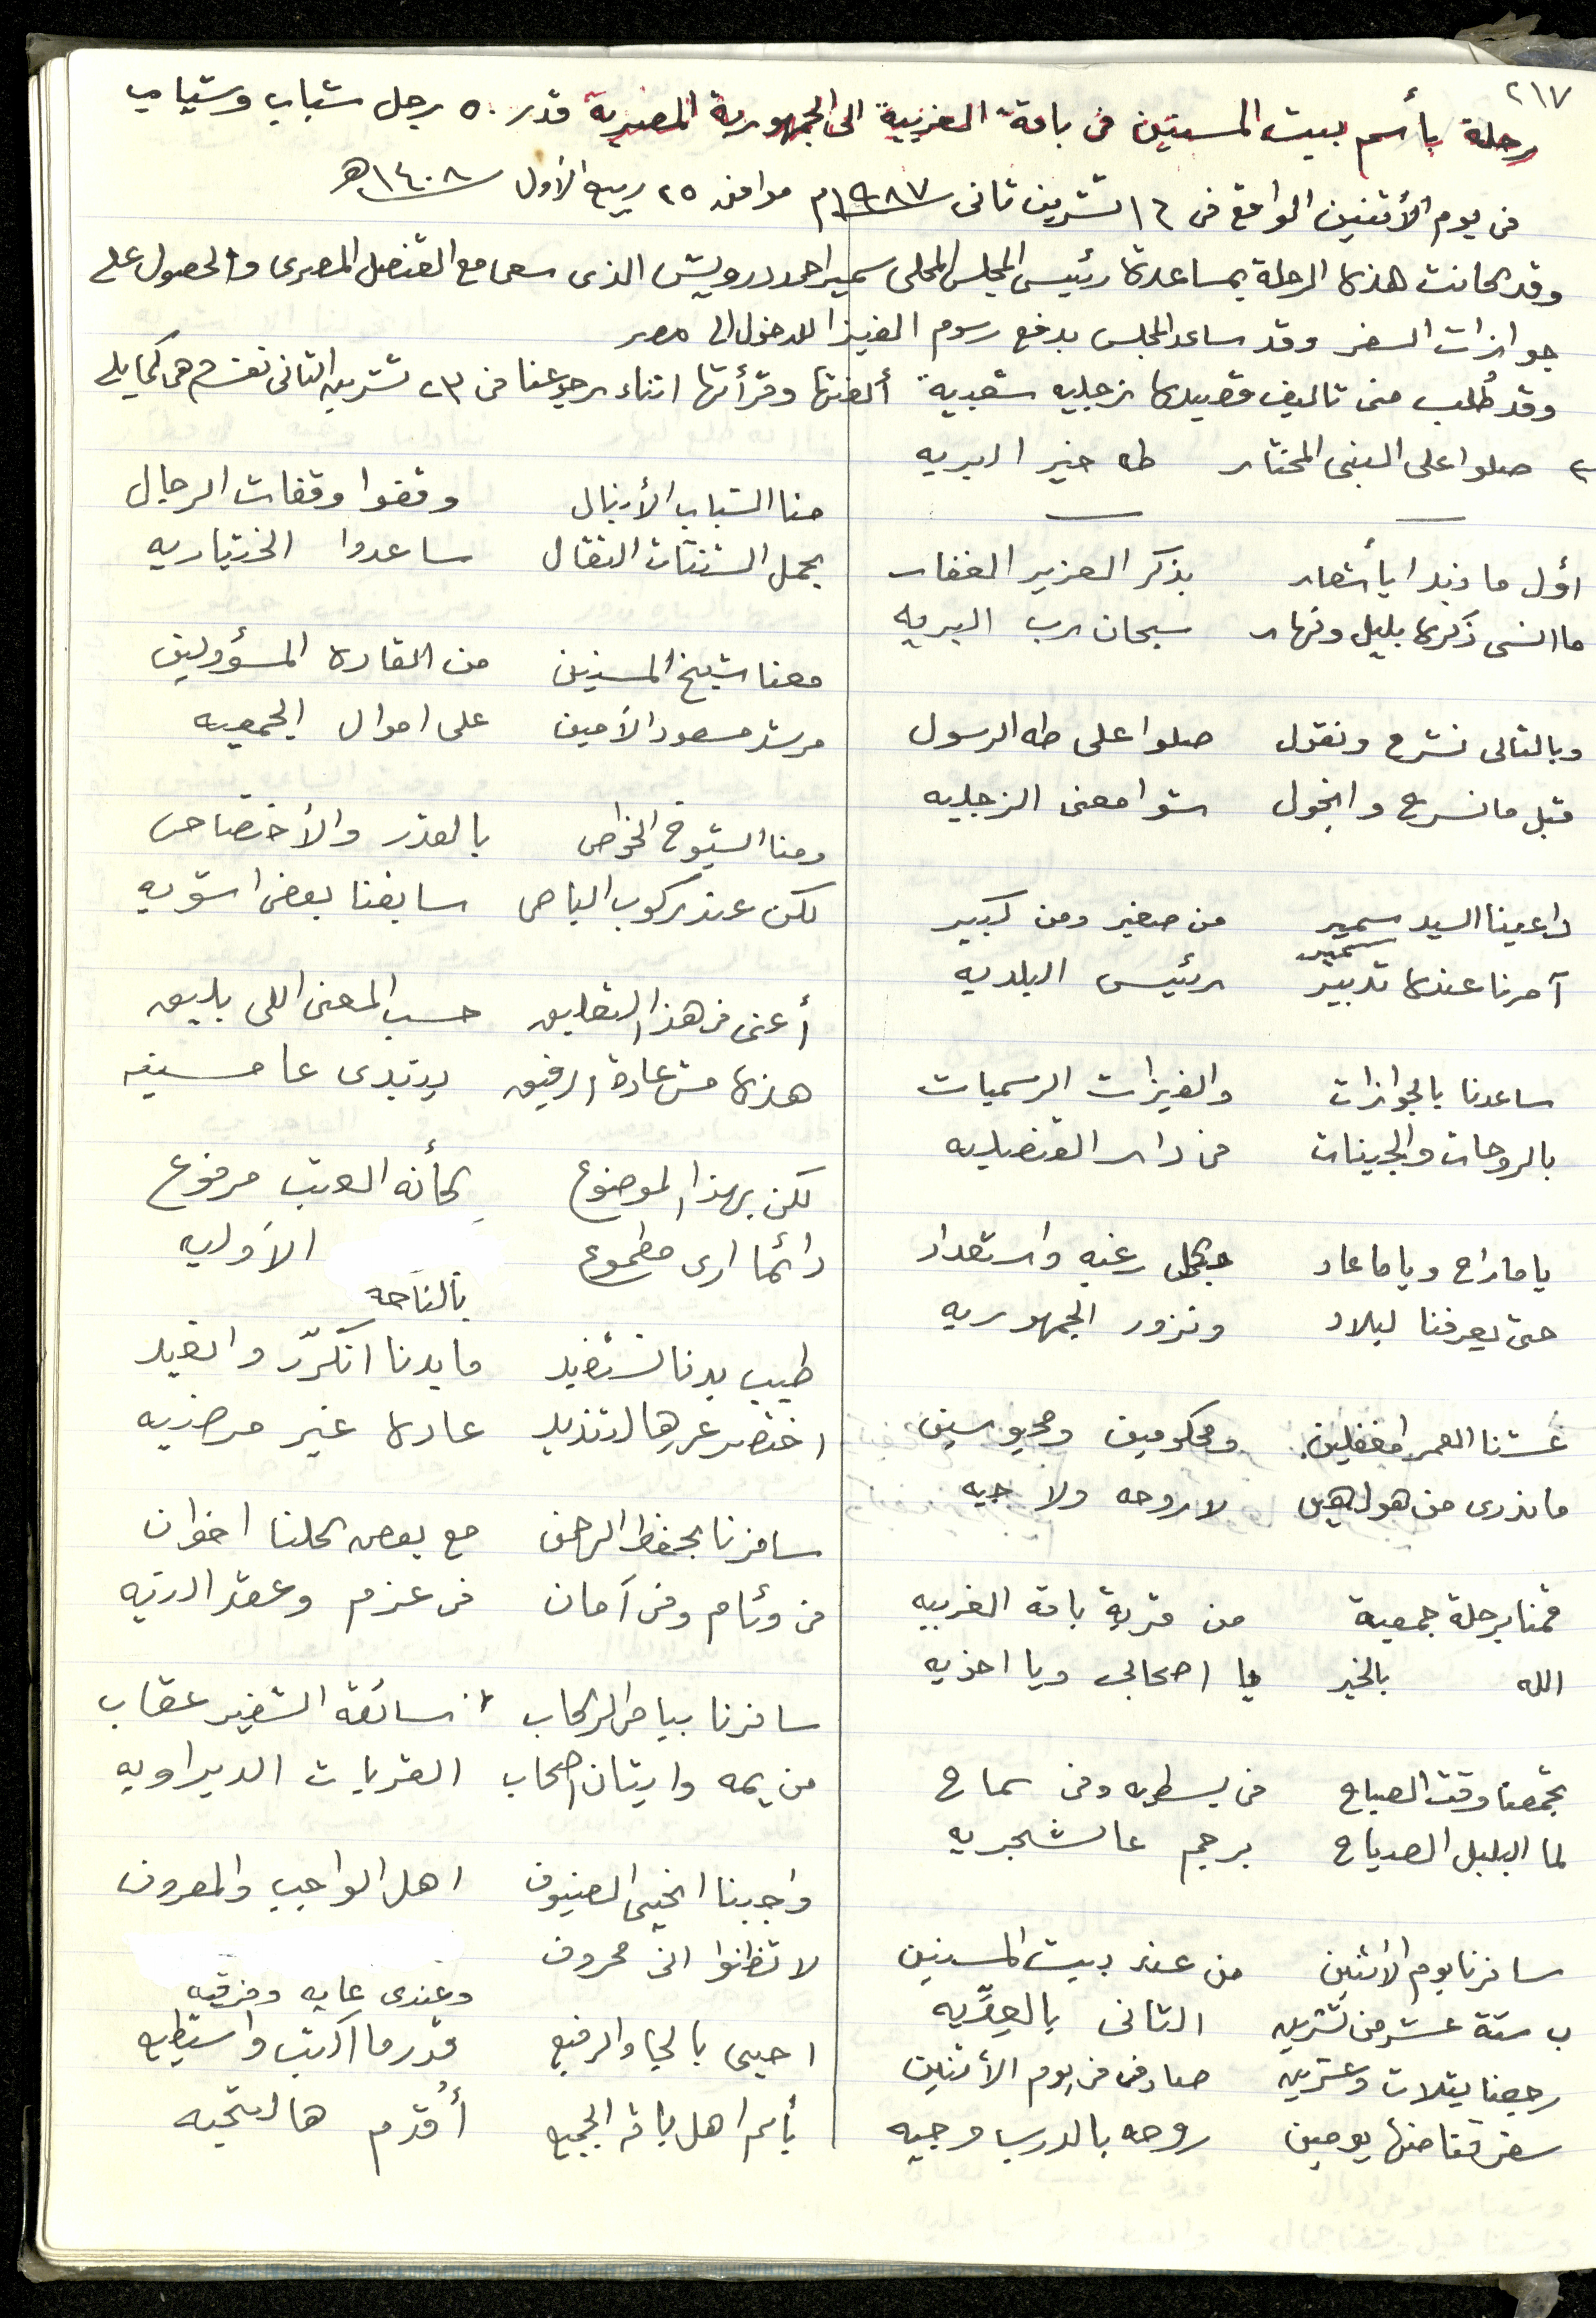 ٢١٧
رحلة بأسم بيت المسنين في باقة الغربية الى الجمهورية المصرية قدر ٥٠ رجل شباب وشياب
في يوم الأثنين الواقع في ١٦ تشرين ثاني ١٩٨٧م موافق ٢٥ ربيع الأول ١٤٠٨هـ
وقد كانت هذه الرحلة بمساعدة رئيس المجلس المحلي سمير احمد درويش الذي سعى مع القنصل المصري والحصول على
جوازات السفر وقد ساعد المجلس بدفع رسوم الفيزا للدخول الى مصر
وقد طُلب مني تاليف قصيده زجليه شعبية ألفتها وقرأتها اثناء رجوعنا في ٢٣ تشرين الثاني هي كما يلي
صلوا على النبي المختار طه خير البريه
اوّل ما نبدا يا شعار بذكر العزيز الغفار
ما انسى ذكره بليل ونهار سبحان رب البريه
وبالتالي نشرح ونقول صلوا على طه الرسول
قبل ما نسرح وانجول شو امعنى الزجليه
داعينا السيد سمير من صغير ومن كبير
سمير
آمرنا عنده تدبير رئيس البلديه
ساعدنا بالجوازات والفيزات الرسميات
بالروحات والجيّات في دار القنصليه
ياما راح وياما عاد بكل رغبه واستعداد
حتى يعرفنا لبلاد ونزور الجمهوريه
عشنا العمر امغفلين ومحكومين ومحبوسين
ما ندري من هول هين لا روحه ولا جيه
قمنا برحلة جمعية من قرية باقة الغربيه
الله بالخير يا اصحابي ويا اخويه
تجمعنا وقت الصباح في بسطه وفي سماح
لما البلبل الصدياح برجم عالشجريه
سافرنا يوم الاثنين من عند بيت المسنين
ب ستة عشر من تشرين الثاني بالعِدِّيه
رجعنا بثلاث وعشرين صادفن في يوم الأثنين
سفر قنا منها يومين روحه بالدرب وجيه
منا الشباب الأبطال وقفوا وقفات الرجال
بحمل الشنتات الثقال ساعدوا الختياريه
معنا شيخ المسنين من القاده المسؤولين
مرشد مسعود الأمين على اموال الجمعيه
ومنا الشيوخ الخواص بالقدر والأختصاص
لكن عند ركوب الباص سابقنا بعض اشويه
أعني في هذا التعليق حسب المعنى اللي بليق
هذه مش عادة ارفيق يبتدي عا مسنيه
لكن بهذا الموضوع كأنه العتب مرفوع
دائما ارى مطموع الأوليه
بالناحه
طيب بدنا نستفيد ما بدنا انكرّر وانعيد
اختصر عن هالتنديد عاده غير مرضيه
سافرنا بحفظ الرحمن مع بعض كلنا اخوان
في وئام وفي آمان في عزم وعقد النيه
سافرنا بباص الركاب سائقه الشفير عقاب
من يمه وابتان اصحاب القريات الديراويه
واجبنا انحيي الضيوف اهل الواجب والمعروف
لا تظنوا اني محروف
وعندي غايه وفرقيه
احيي بالحيا والرفيع قدر ما اكتب واستطيع
بأسم اهل باقه الجميع أُقدم هالتحيه